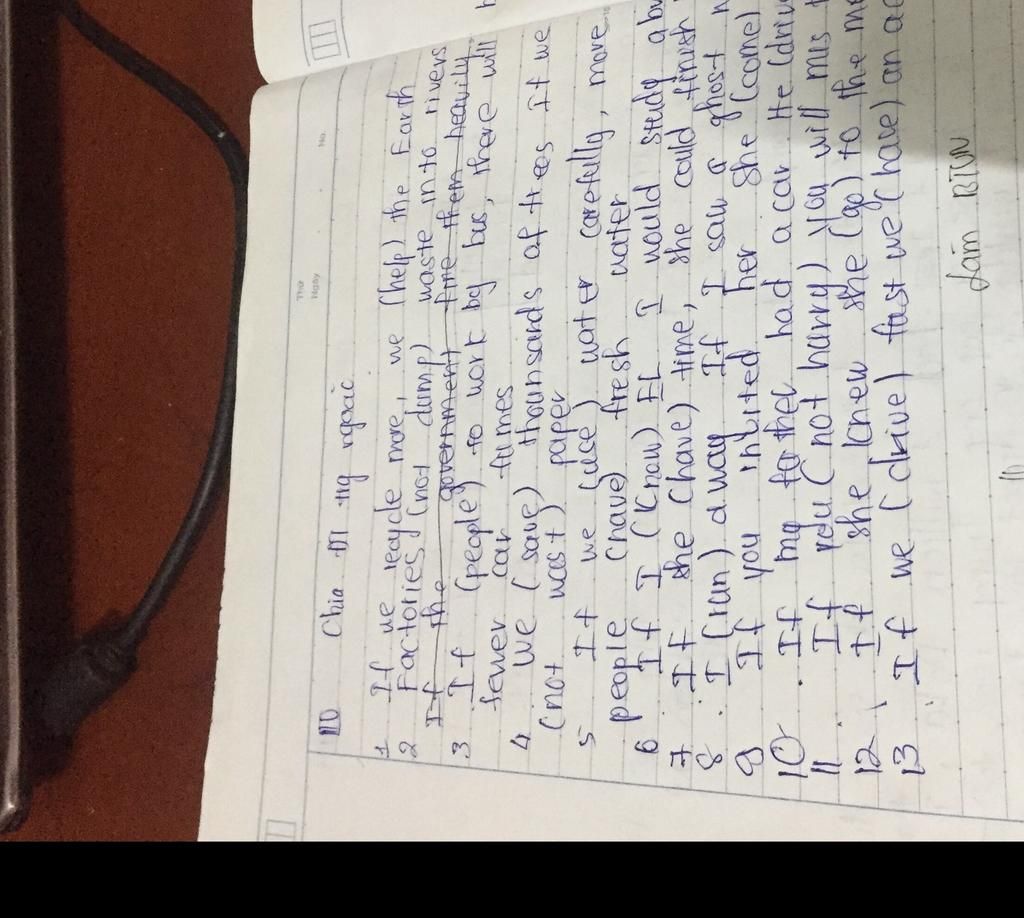 Thứ
Ngày
No.
110 Chia ĐT tig ngoặc
1 If we recycle more, we (help) the Earth
2 Factories (not dump) waste in to rivers
If the government fine them heavily
3 If (people) to work by bus, there will
fewer car fumes
4 we (save) thounsands of trees If we
(not wast) paper
5 If we (use) water carefully, more
people (have) fresh water
6 If I (know) I would study
7 If she (have) time, she could finish
8 I (run) away If I saw a ghost
9 If you invited her she (come)
10 If my father had a car He (drive
11 If you (not harry) you will mis
12 If she knew she (go) to the
13 If we (drive) fast we (have) an
Làm BTVN